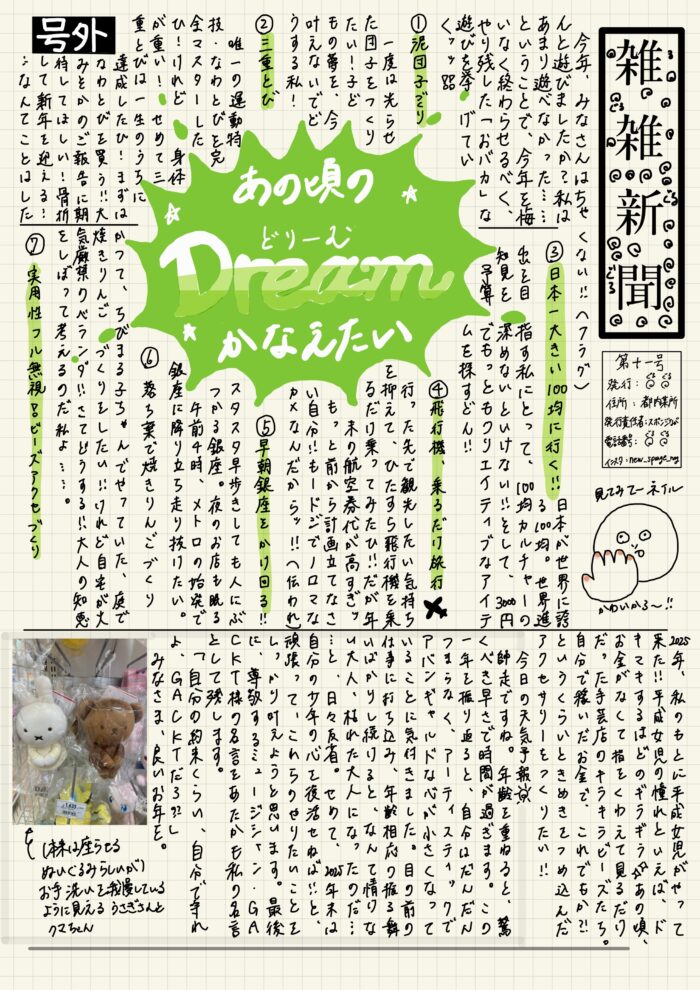 号外
雑雑新聞
ごろ
ごろ
ごろ
ごろ
第十一号
発行：
住所：都内某所
発行責任者：スポンジのび
電話番号：
インスタ：
あの頃の
どりーむ
Dream
かなえたい
今年、みなさんはちゃ
んと遊びましたか？私は
あまり遊べなかった……
ということで、今年を悔
いなく終わらせるべく、
やり残した「おバカ」な
遊びを挙げてい
くッッ!!
①泥団子づくり
一度は光らせ
た団子をつくり
たい！子ど
もの夢を、今
叶えないでど
うする私！
②三重とび
唯一の運動特
技・なわとびを完
全マスターした
ひ！けれど身体
が重い！せめて三
重とびは一生のうちに
達成したひ！まずは
なわとびを買う!!大
みそかのご報告に期
待してほしい！骨折
して新年を迎える！
…なんてことはした
くない!!（フラグ）
③日本一大きい100均に行く!!
日本が世界に誇
る100均。世界進
出を目指す私にとって、100均カルチャーの
知見を深めないといけない!!そして、3000円
予算でもっともクリエイティブなアイテ
ムを探すどん!!
④飛行機、乗るだけ旅行
行った先で観光したい気持ち
を抑えて、ひたすら飛行機を乗
るだけ乗ってみたひ!!だが年
末の航空券代が高すぎッ
もっと前から計画立てなさ
い自分!!もードジでノロマな
カメなんだからッ!!（伝われ）
⑤早朝銀座をかけ回る!!
スタスタ早歩きしても人にぶ
つかる銀座。夜のお店も眠る
午前4時、メトロの始発で
銀座に降り立ち走り抜けたい。
⑥落ち葉で焼きりんごづくり
かつて、ちびまる子ちゃんでやっていた、庭で
焼きりんごづくりをしたい!!けれど自宅が火
気厳禁のベランダ!!さてどうする!!大人の知恵
をしぼって考えるのだ私よ……。
⑦実用性フル無視ビーズアクセづくり
見てみてーネイル
かわいかろ〜!!
2025年、私のもとに平成女児がやって
来た!!平成女児の憧れといえば、ド
キマキするほどのギラギラ♡あの頃、
お金がなくて指をくわえて見るだけ
だった手芸店のキラキラビーズたち。
自分で稼いだお金で、これでもか!!
というくらいときめきをつめ込んだ
アクセサリーをつくりたい!!
今日の天気予報
師走ですね。年齢を重ねると、驚
くべき早さで時間が過ぎます。この
一年を振り返ると、自分はだんだん
つまらなく、アーティスティックで
アバンギャルドな心が小さくなって
いることに気付きました。目の前の
仕事に打ち込み、年齢相応の振る舞
いばかりし続けると、なんて情けな
い大人、枯れた大人になったのだ…
…と、日々反省。せめて、2025年末は
自分の少年の心を復活せねば!!と、
頑張って、これらのやりたいことを
しっかり叶えようと思います。最後
に、尊敬するミュージシャン・GA
CKT様の名言をあたかも私の名言
として残します。
「自分の約束くらい、自分で守れ
よ、GACKTだろ?」
みなさま、良いお年を。
ぬいぐるみらしいが)
お手洗いを我慢している
ように見えるうさぎさんと
クマちゃん